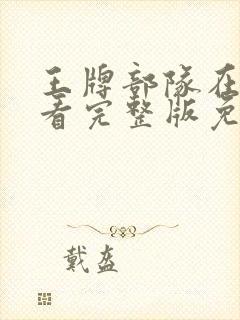 王牌部队在
看完整版免
戴盔